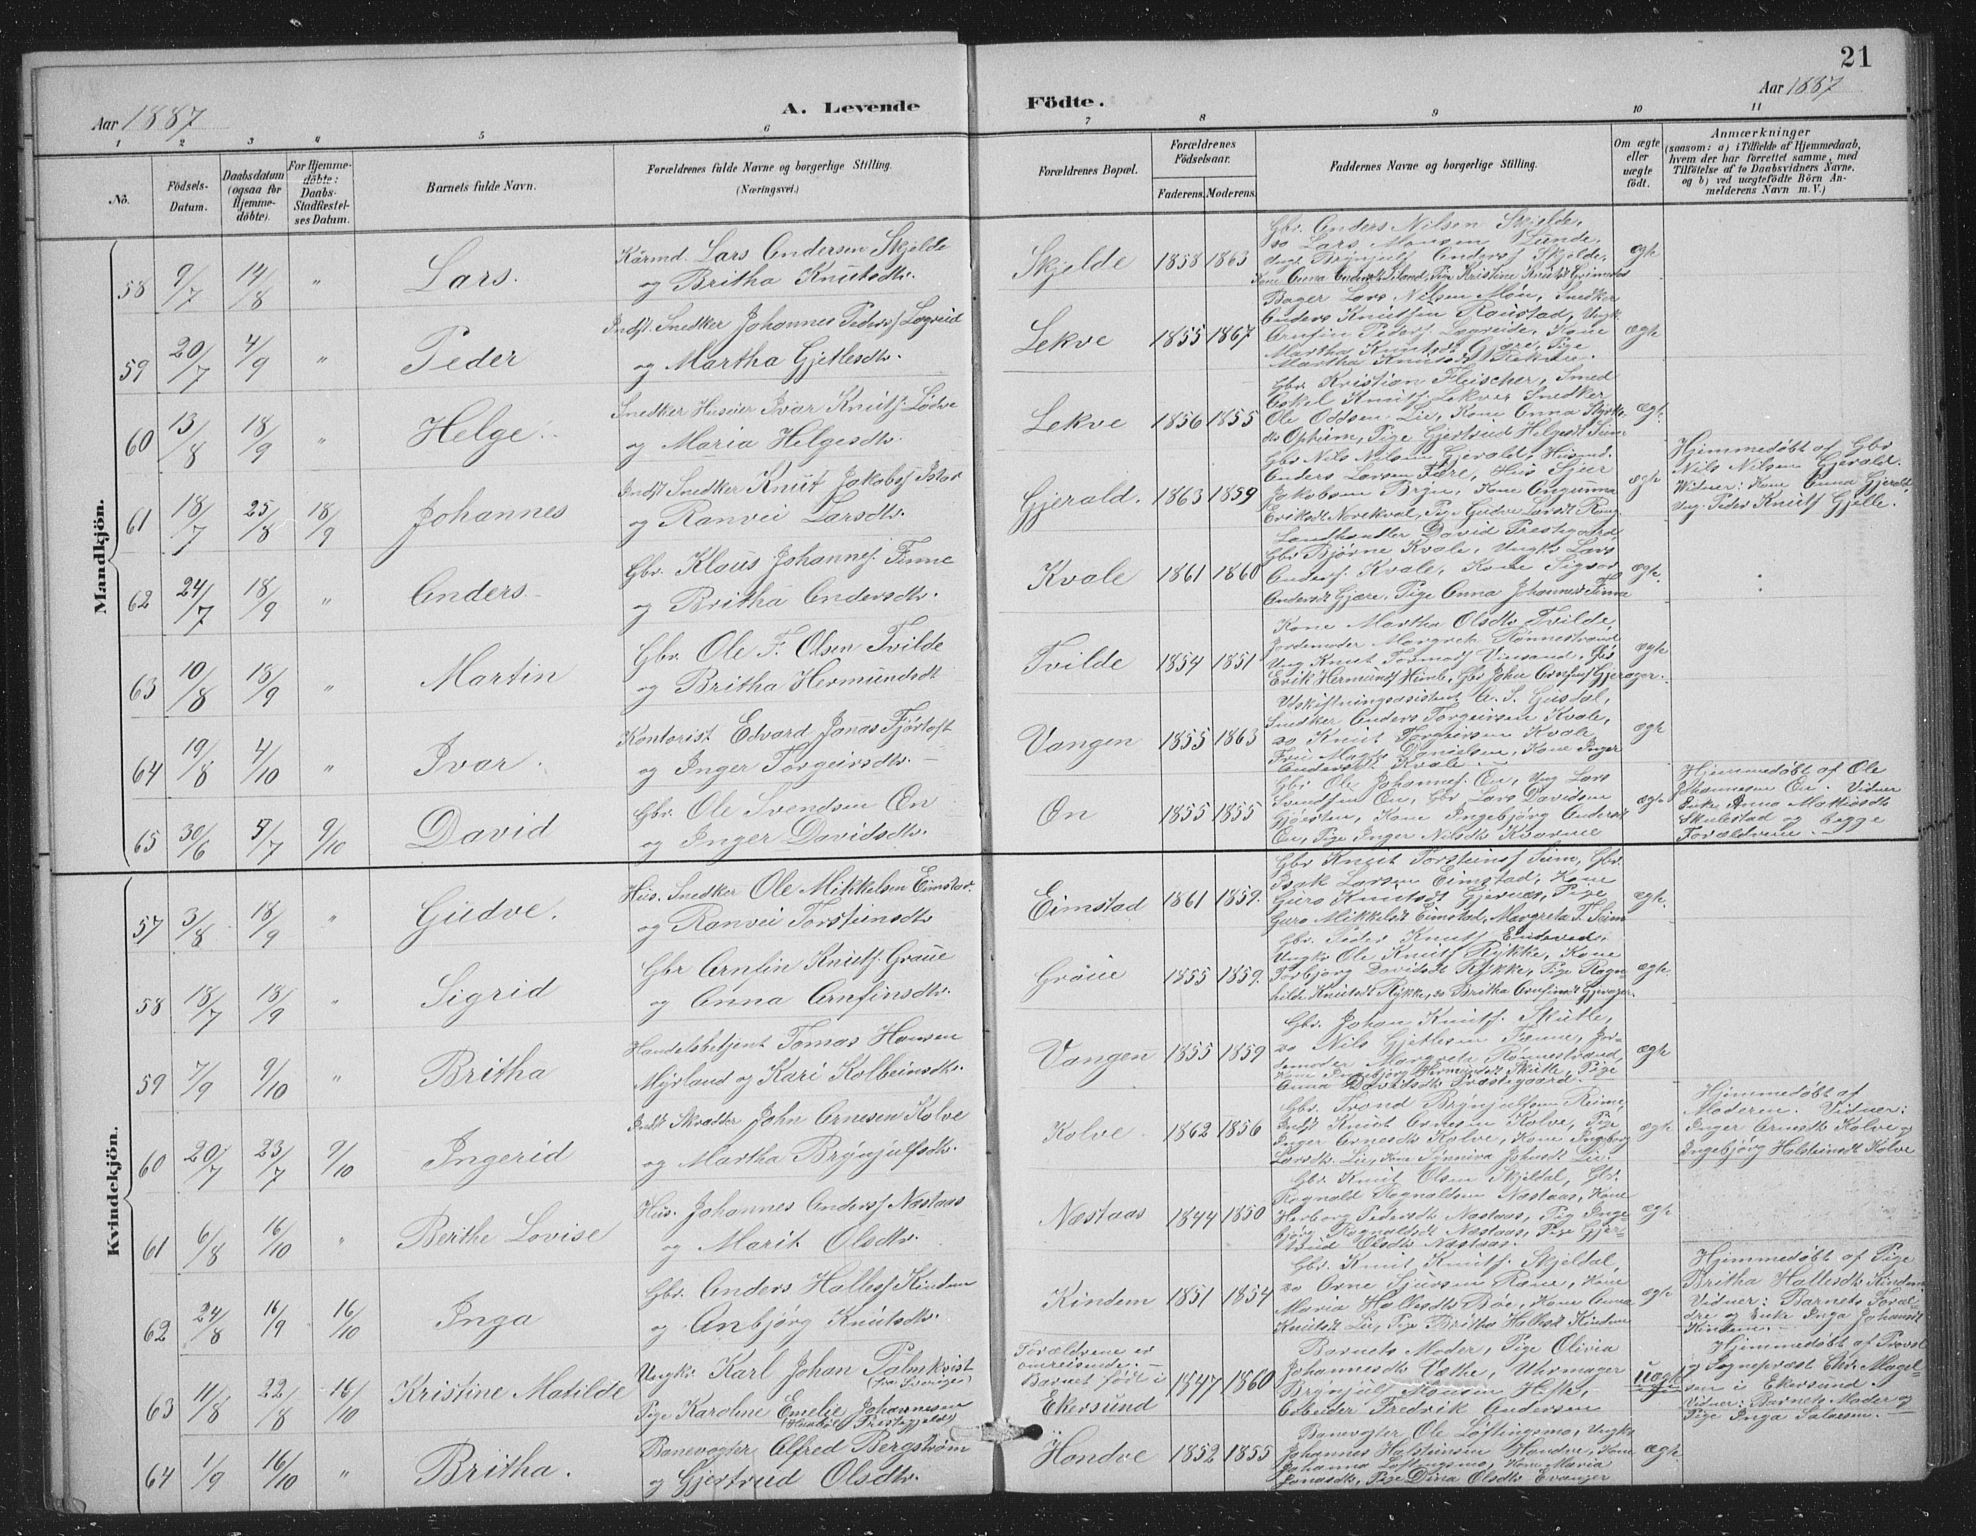 21
Aar 1887
A. Levende Födte.
Aar 1887
1 2 3 4 5 6 7 8 9 10 11
No.
Födsels-Datum.
Daabsdatum (ogsaa for Hjemme-döbte).
For Hjemme-döbte: Daabs-Stadfæstel-ses Datum.
Barnets fulde Navn.
Forældrenes fulde Navne og borgerlige Stilling. (Næringsvei.)
Forældrenes Bopæl.
Forældrenes Födselsaar.
Faderens. Moderens.
Faddernes Navne og borgerlige Stilling.
Om ægte eller uægte födt.
Anmærkninger
(saasom: a) i Tilfælde af Hjemmedaab, hvem der har forrettet samme, med Tilföielse af to Daabsvidners Navne, og b) ved uægtefödte Börn An-melderens Navn m. V.)
Mandkjön.
58 9/7 14/8 " Lars.
Kårmd. Lars Andersen Skjelde
og Britha Knutsdtr.
Skjelde 1858 1863
Gbr. Anders Nilsen Skjelde,
do Lars Monsen Lunde,
Ungk. Brynjulf Anders Skjelde,
ægte
59 20/7 4/9 " Peder
Indst. Snedker Johannes Peders Løgreid
og Martha Gjetlesdtr.
Lekve 1855 1867
Bager Lars Nilsen Møn, Snedker
Anders Knutsen Rønstad, Ungk.
Arnfin Peders. Løgreide, Kone
Martha Knutsdt Gjære, Pige
ægte
60 13/8 18/9 " Helge.
Snedker Huseier Ivar Knuts. Lødve
og Maria Helgesdtr.
Lekve 1856 1855
Gbr. Kristian Fleischer, Smed
Askel Knuts Lekve, Snedker
Ole Oddsen Lie, Kone Anna Styrk-
dtr Opheim, Pige Gjertrud Helgesdt
ægt.
61 18/7 25/8 18/9 Johannes
Indst Snedker Knut Jakobs
og Ranvei Larsdtr.
Gjerald. 1863 1859
Gbr Nils Nilsen Gjerald, Husmd.
Anders Larsen Fære, Hus Sjur
Jakobsen Bryn, Kone Angunna
Eriksdt Norekval, Pige Gudve Larsdt
ægte
Hjemmedøbt af Gbr
Nils Nilsen Gjerald.
Vidner: Kone Anna Gjerald,
Ung. Peder Knuts Gjelle.
62 24/7 18/9 " Anders
Gbr. Klaus Johannes. Finne
og Britha Andersdtr.
Kvale 1861 1860
Landhandler David Prestegaard,
Gbr Bjørne Kvale, Ungk. Lars
Anders. Kvale, Kone Sigvor
Andersdt Gjære, Pige Anna Johannesdt Finne
ægte
63 10/8 18/9 " Martin
Gbr. Ole T. Olsen Tvilde
og Britha Hermundsdt
Tvilde 1854 1851
Kone Martha Olsdtr Tvilde,
Jordemoder Margrete Rønnestrand
Ung Knut Tormods Vinsand, Gbr
ægte
64 19/8 4/10 " Ivar.
Kontorist Edvard Jonas Fjørtoft
og Inger Torgeirsdtr.
Vangen 1855 1863
Udskiftningsassistent
Snedker Anders Torgeirsen Kvale,
do Knut Torgeirsen Kvale
Fru Magts Danielsen, Kone Inger
Andersdt Kvale.
ægte
65 30/6 3/7 9/10 David
Gbr. Ole Svendsen En
og Inger Davidsdtr.
En 1855 1855
Gbr. Ole Johannes. En, Ung Lars
Svendsen En, Gbr Lars Davidsen
Gjøsten, Kone Ingebjørg Andersdt
En, Pige Inger Nilsdtr Kvarme
ægte
Hjemmedøbt af Ole
Johannesen En. Vidner
Enke Anna Mathiasdt
Skulestad og begge
Forældrene.
Kvindekjön.
57 3/8 18/9 " Gudve.
Hus. Snedker Ole Mikkelsen Eimstad.
og Ranvei Torsteinsdtr
Eimstad 1861 1859.
Gbr Knut Torsteins Seim, Gbr.
Isak Larsen Eimstad, Kone
Guro Knutsdt Gjernes, Pige
Guro Mikkelsdt Eimstad, Margreta T. Seim
ægte.
58 18/7 18/9 " Sigrid
Gbr Arnfin Knuts. Graue
og Anna Arnfinsdtr.
Gräue 1855 1859.
Gbr. Peder Knuts
Ungk. Ole Knuts Rykke, Kone
Torbjørg Davidsdt Rykke, Pige Ragn-
hilde Knutsdt Rykke, do Britha Arnfinsdt Gjerager.
ægte.
59 7/9 9/10 " Britha
Handelsbetjent Tomas Hansen
Myrland og Kari Kolbeinsdtr.
Vangen 1855 1859
Gbr. Johan Knuts. Skutle,
do Nils Gjetlesen Tønne, Jor-
demoder Margrete Rønnestrand,
Kone Ingebjørg Hermundsdt Skutle, Pige
Anna Davidsdtr Præstegaard.
ægte
60 20/7 23/7 9/10 Ingerid
Indst Skrædder John Arnesen Kolve
og Martha Brynjulfsdtr.
Kolve 1862 1856
Gbr. Trond Brynjulfsen Reime,
Indst Knut Arnesen Kolve, Pige
Inger Arnesdt Kolve, Kone Ingeborg
Larsdtr. Lie, Kone Synniva Johnsdt Lie.
ægte
Hjemmedøbt af
Moderen. Vidner:
Inger Arnesdt Kolve og
Ingebjørg Halsteinsdt Kolve
61 6/8 16/10 " Berthe Lovise
Hus. Johannes Anders Næstaas
og Marit Olsdtr.
Næstaas 1844 1850
Gbr. Knut Olsen Skjeldal, Gbr.
Rognald Rognaldsen Næstaas, Kone
Herborg Pedersdt Næstaas, Pig Inge-
bjørg Rognaldsdt Næstaas, Pige Gjer-
trud Olsdtr Næstaas.
ægte
62 24/8 16/9 16/10 Inga
Gbr. Anders Halles Kindem
og Anbjørg Knutsdtr.
Kindem 1851 1854
Gbr. Knut Knuts. Skjeldal,
do Arne Sjursen Røne, Kone
Maria Hallesdtr Bøe, Kone Anna
Knutsdt Lie, Pige Britha Hallesdt Kindem
ægte
Hjemmedøbt af Pige
Britha Hallesdtr Kindem
Vidner: Barnets Foræl-
dre og Enke Inga Johannsdt
Kindem.
63 11/8 22/8 16/10 Kristine Matilde
Ungk. Karl Johan Palmkvist
(fra Sverige)
Pige Karoline Emelie Johannesen
Forældrene er
omreisende.
Barnet født i
Ekersund
1847 1860
Barnets Moder, Pige Olivia
Johannesdt Væthe, Uhrmager
Brynjul Monsen Hefte,
Arbeider Fredrik Andersen
uægte
Hjemmedøbt af Provst
og Sognepræst Chr. Magel-
sen i Ekersund.
Vidner: Barnets Moder og
Pige Inga Salvesen.
64 1/9 16/10 " Britha.
Banevogter Alfred Bergstrøm
og Gjertrud Olsdtr.
Hondve 1852 1855
Banevogter Ole Løftingsmo, Ungk.
Johannes Halsteinsen Hondve, Kone
Johanna Løftingsmo, Kone Maria
Jonasdtr, Pige Dina Olsdtr Evanger
ægte.